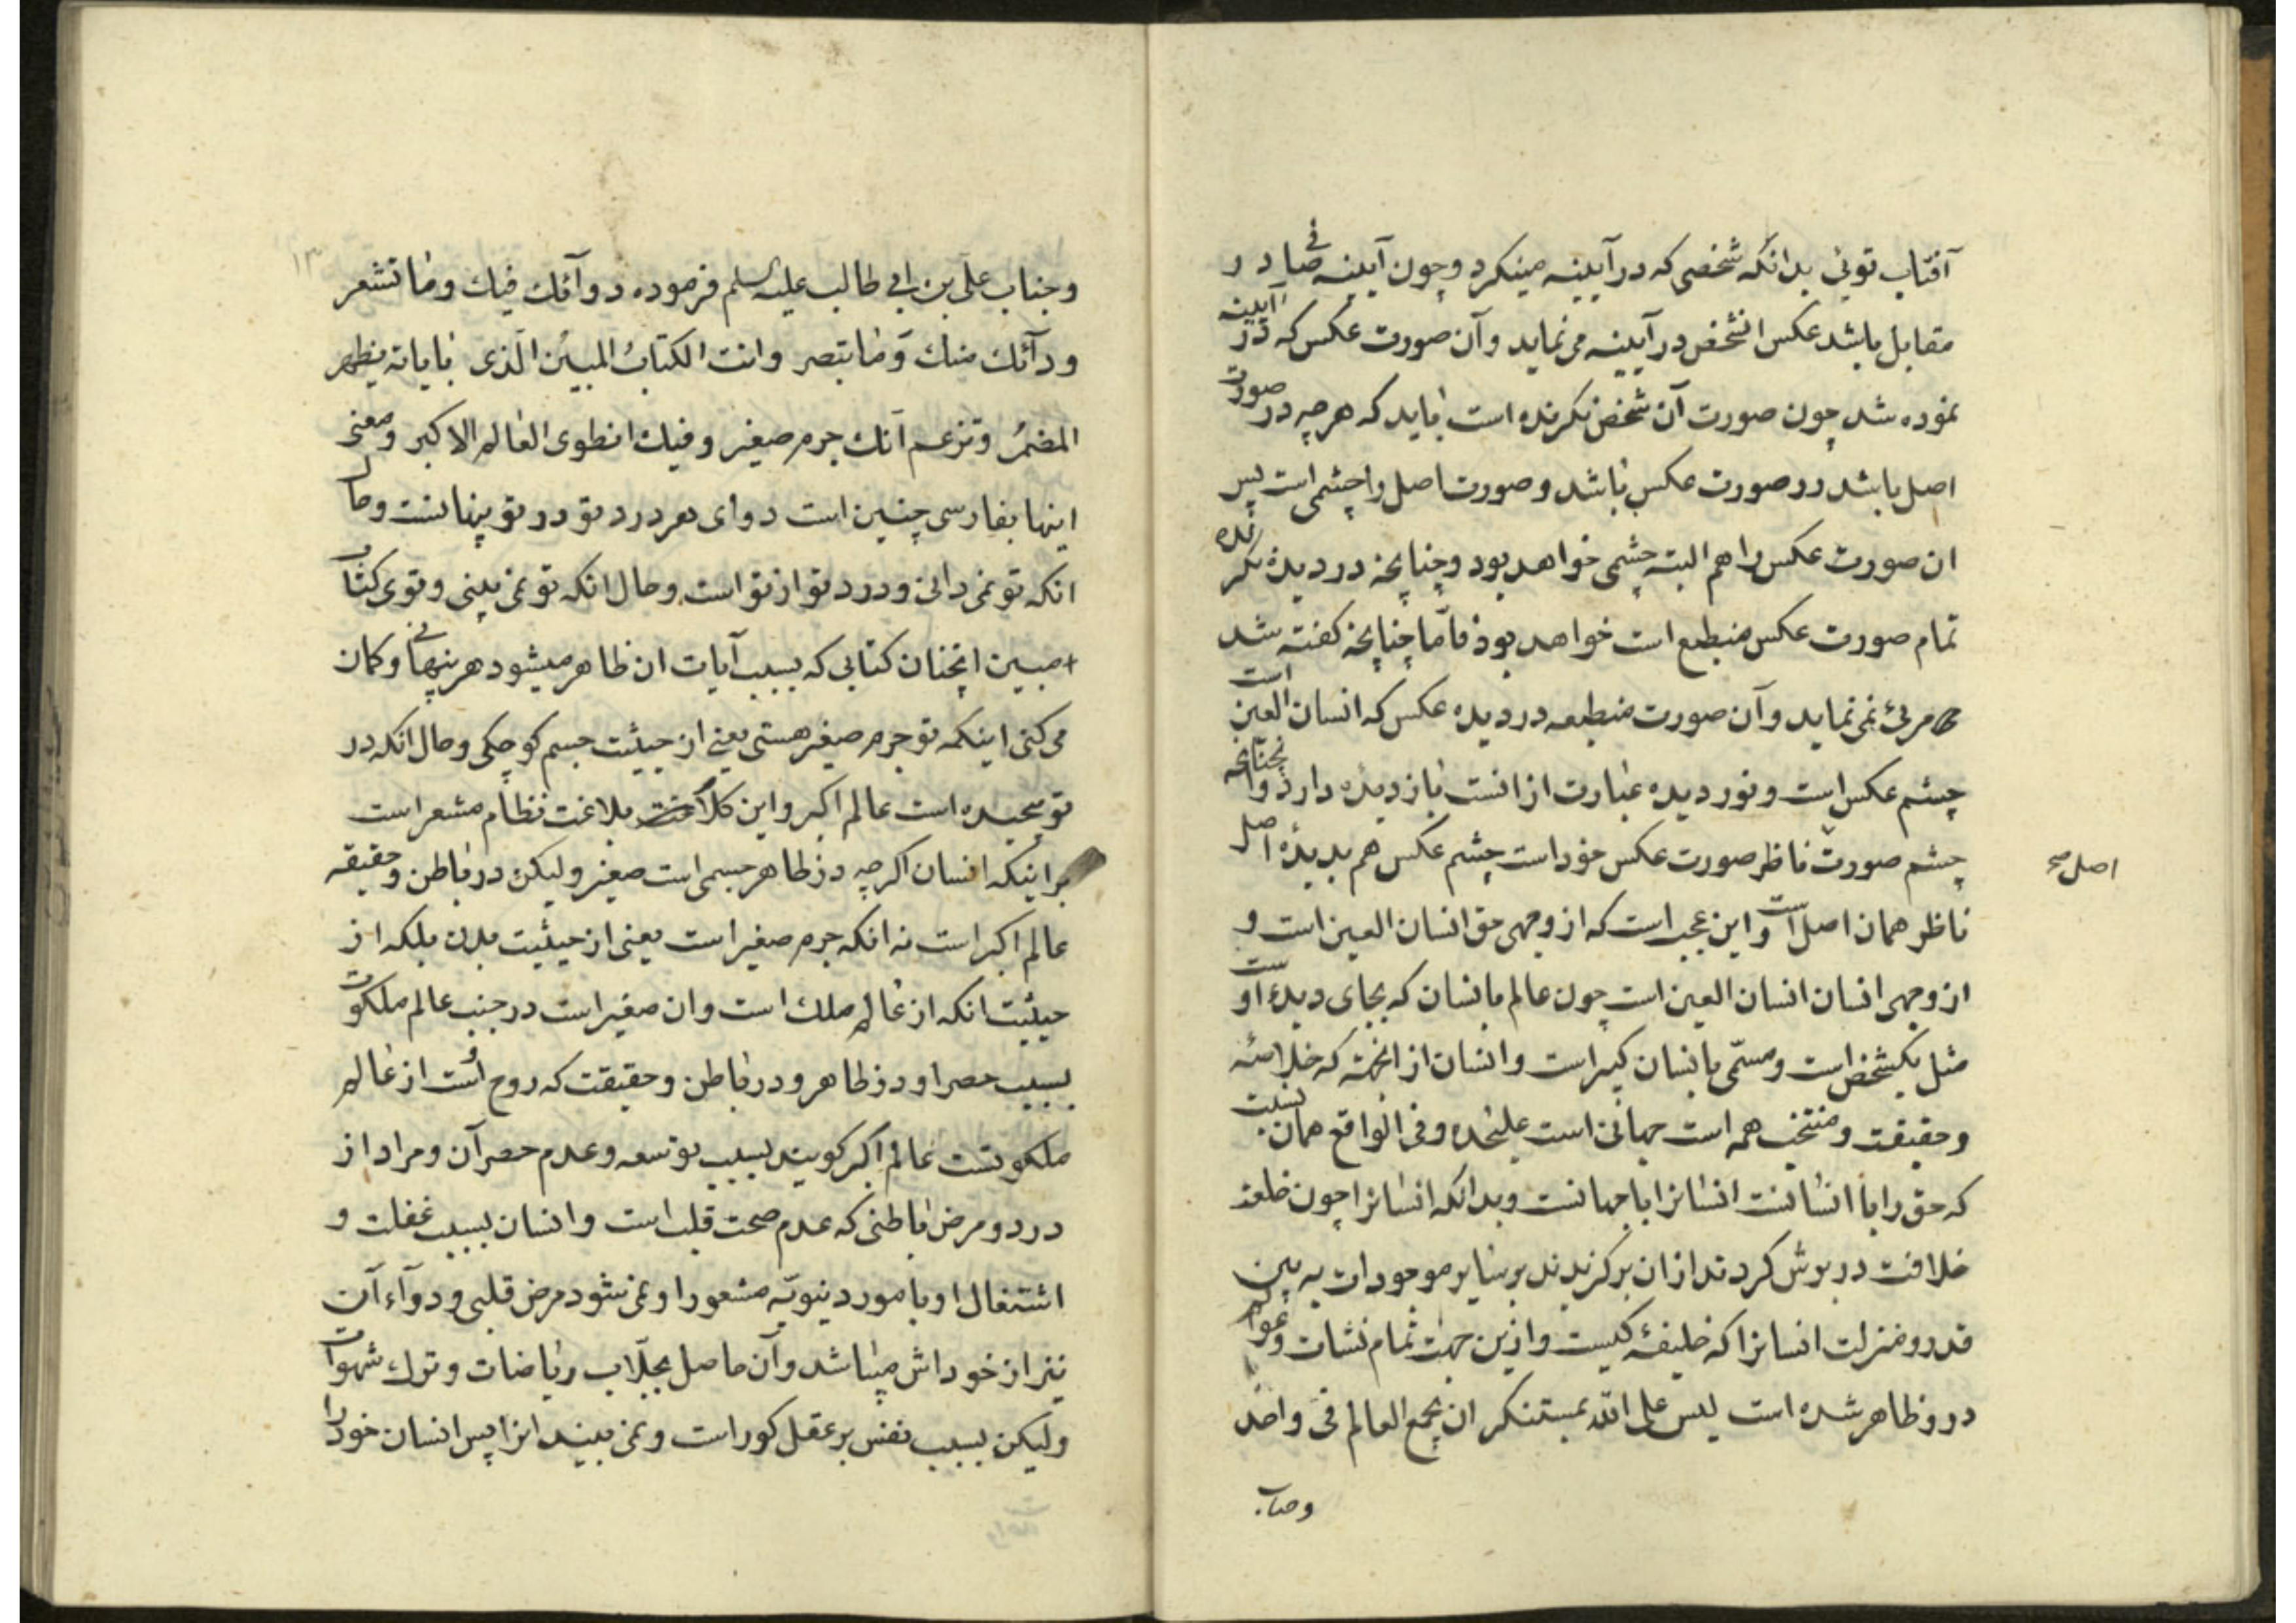 آفتاب توئی بدانکه شخصی که در آیینه مینکرد و چون آیینه صافی در
مقابل باشد عکس انشخص در آیینه می نماید و آن صورت عکس که در آیینه
نموده شد چون صورت آن شخص نکرنده است باید که هر چه در صورت
اصل باشد در صورت عکس باشد و صورت اصل را چشمی است پس
ان صورت عکس را هم البته چشمی خواهد بود و چنانچه در دیدهٔ نکرنده
تمام صورت عکس منبطع است خواهد بود فاما چنانچه کفته شد
مرئی نمی نماید و آن صورت منبطعه در دیده عکس که انسان العین است
چشم عکس است و نور دیده عبارت از انست باز دیده دارد و انچنانچه
چشم صورت ناظر صورت عکس خود است چشم عکس هم بدیدهٔ اصل
اصل صح
ناظر همان اصل است و این عجب است که از وجهی حق انسان العین است و
از وجهی انسان انسان العین است چون عالم بانسان که بجای دیدهٔ اوست
مثل یکشخص است و مسمّی بانسان کبیر است و انسان از انجهة که خلاصهٔ
و حقیقت و منتخب همه است جهانی است علیحده و فی الواقع همان نسبت
که حق را با انسانست انسانرا با جهانست و بدانکه انسانرا چون خلعت
خلافت در برش کردند از ان برکزیدند بر سایر موجودات به بین
قدر و منزلت انسانرا که خلیفهٔ کیست و ازین جهت تمام نشات و عوالم
درو ظاهر شده است لیس علی الله بمستنکر ان یجمع العالم فی واحد
وجناب
۱۳
و جناب علی بن ابی طالب علیه السلم فرموده دوآئک فیک وما تشعر
ودآئک منک وما تبصر وانت الکتاب المبین الذی بایاته یظهر
المضمر وتزعم انک جرم صغیر وفیک انطوی العالم الاکبر و معنی
اینها بفارسی چنین است دوای هر درد تو در تو پنهانست و حال
انکه تو نمی دانی و درد تو از تو است و حال انکه تو نمی بینی و توی کتاب
مبین انچنان کتابی که بسبب آیات ان ظاهر میشود هر پنهانی و کمان
می کنی اینکه تو جرم صغیر هستی یعنی از حیثیت جسم کوچکی و حال انکه در
تو پیچیده است عالم اکبر و این کلام بلاغت نظام مشعر است
بر اینکه انسان اکرچه در ظاهر جسمی است صغیر ولیکن در باطن و حقیقه
عالم اکبر است نه انکه جرم صغیر است یعنی از حیثیت بدن بلکه از
حیثیت انکه از عالم ملک است و ان صغیر است در جنب عالم ملکوت
بسبب حصر او در ظاهر و در باطن و حقیقت که روح اوست از عالم
ملکوتست عالم اکبر کویند بسبب توسعه و عدم حصر آن و مراد از
درد و مرض باطنی که عدم صحت قلب است و انسان بسبب غفلت و
اشتغال او بامور دنیویّه مشعور او نمی شود مرض قلبی و دوآء آن
نیز از خوداش میباشد و آن حاصل بجلّاب ریاضات و ترک شهوات
ولیکن بسبب نفس بر عقل کور است و نمی بیند انرا پس انسان خود را